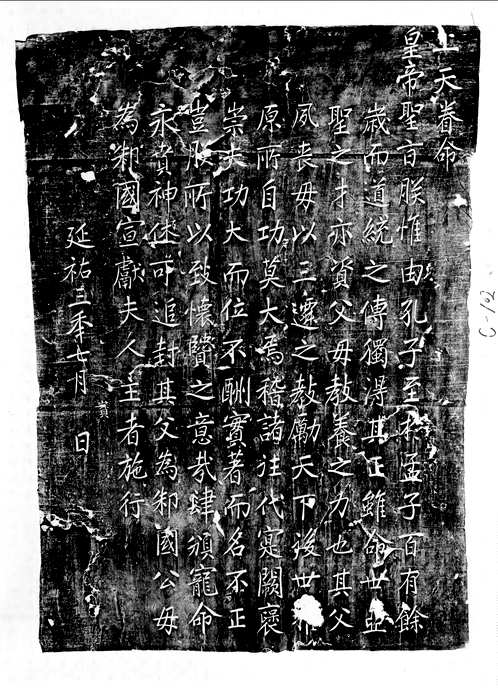 上天眷命
皇帝聖旨朕惟由孔子至於孟子百有餘
歲而道統之傳獨得其正雖命世亞
聖之才亦資父毋教養之力也其父
夙喪毋以三遷之教勵天下後世
原所自功莫大焉稽諸往代寔闕褒
崇夫功大而位不酬實著而名不正
豈朕所以致懷賢之意哉肆頒寵命
永賁神休可追封其父為邾國公毋
為邾國宣獻夫人主者施行
延祐三年七月 日
C-102